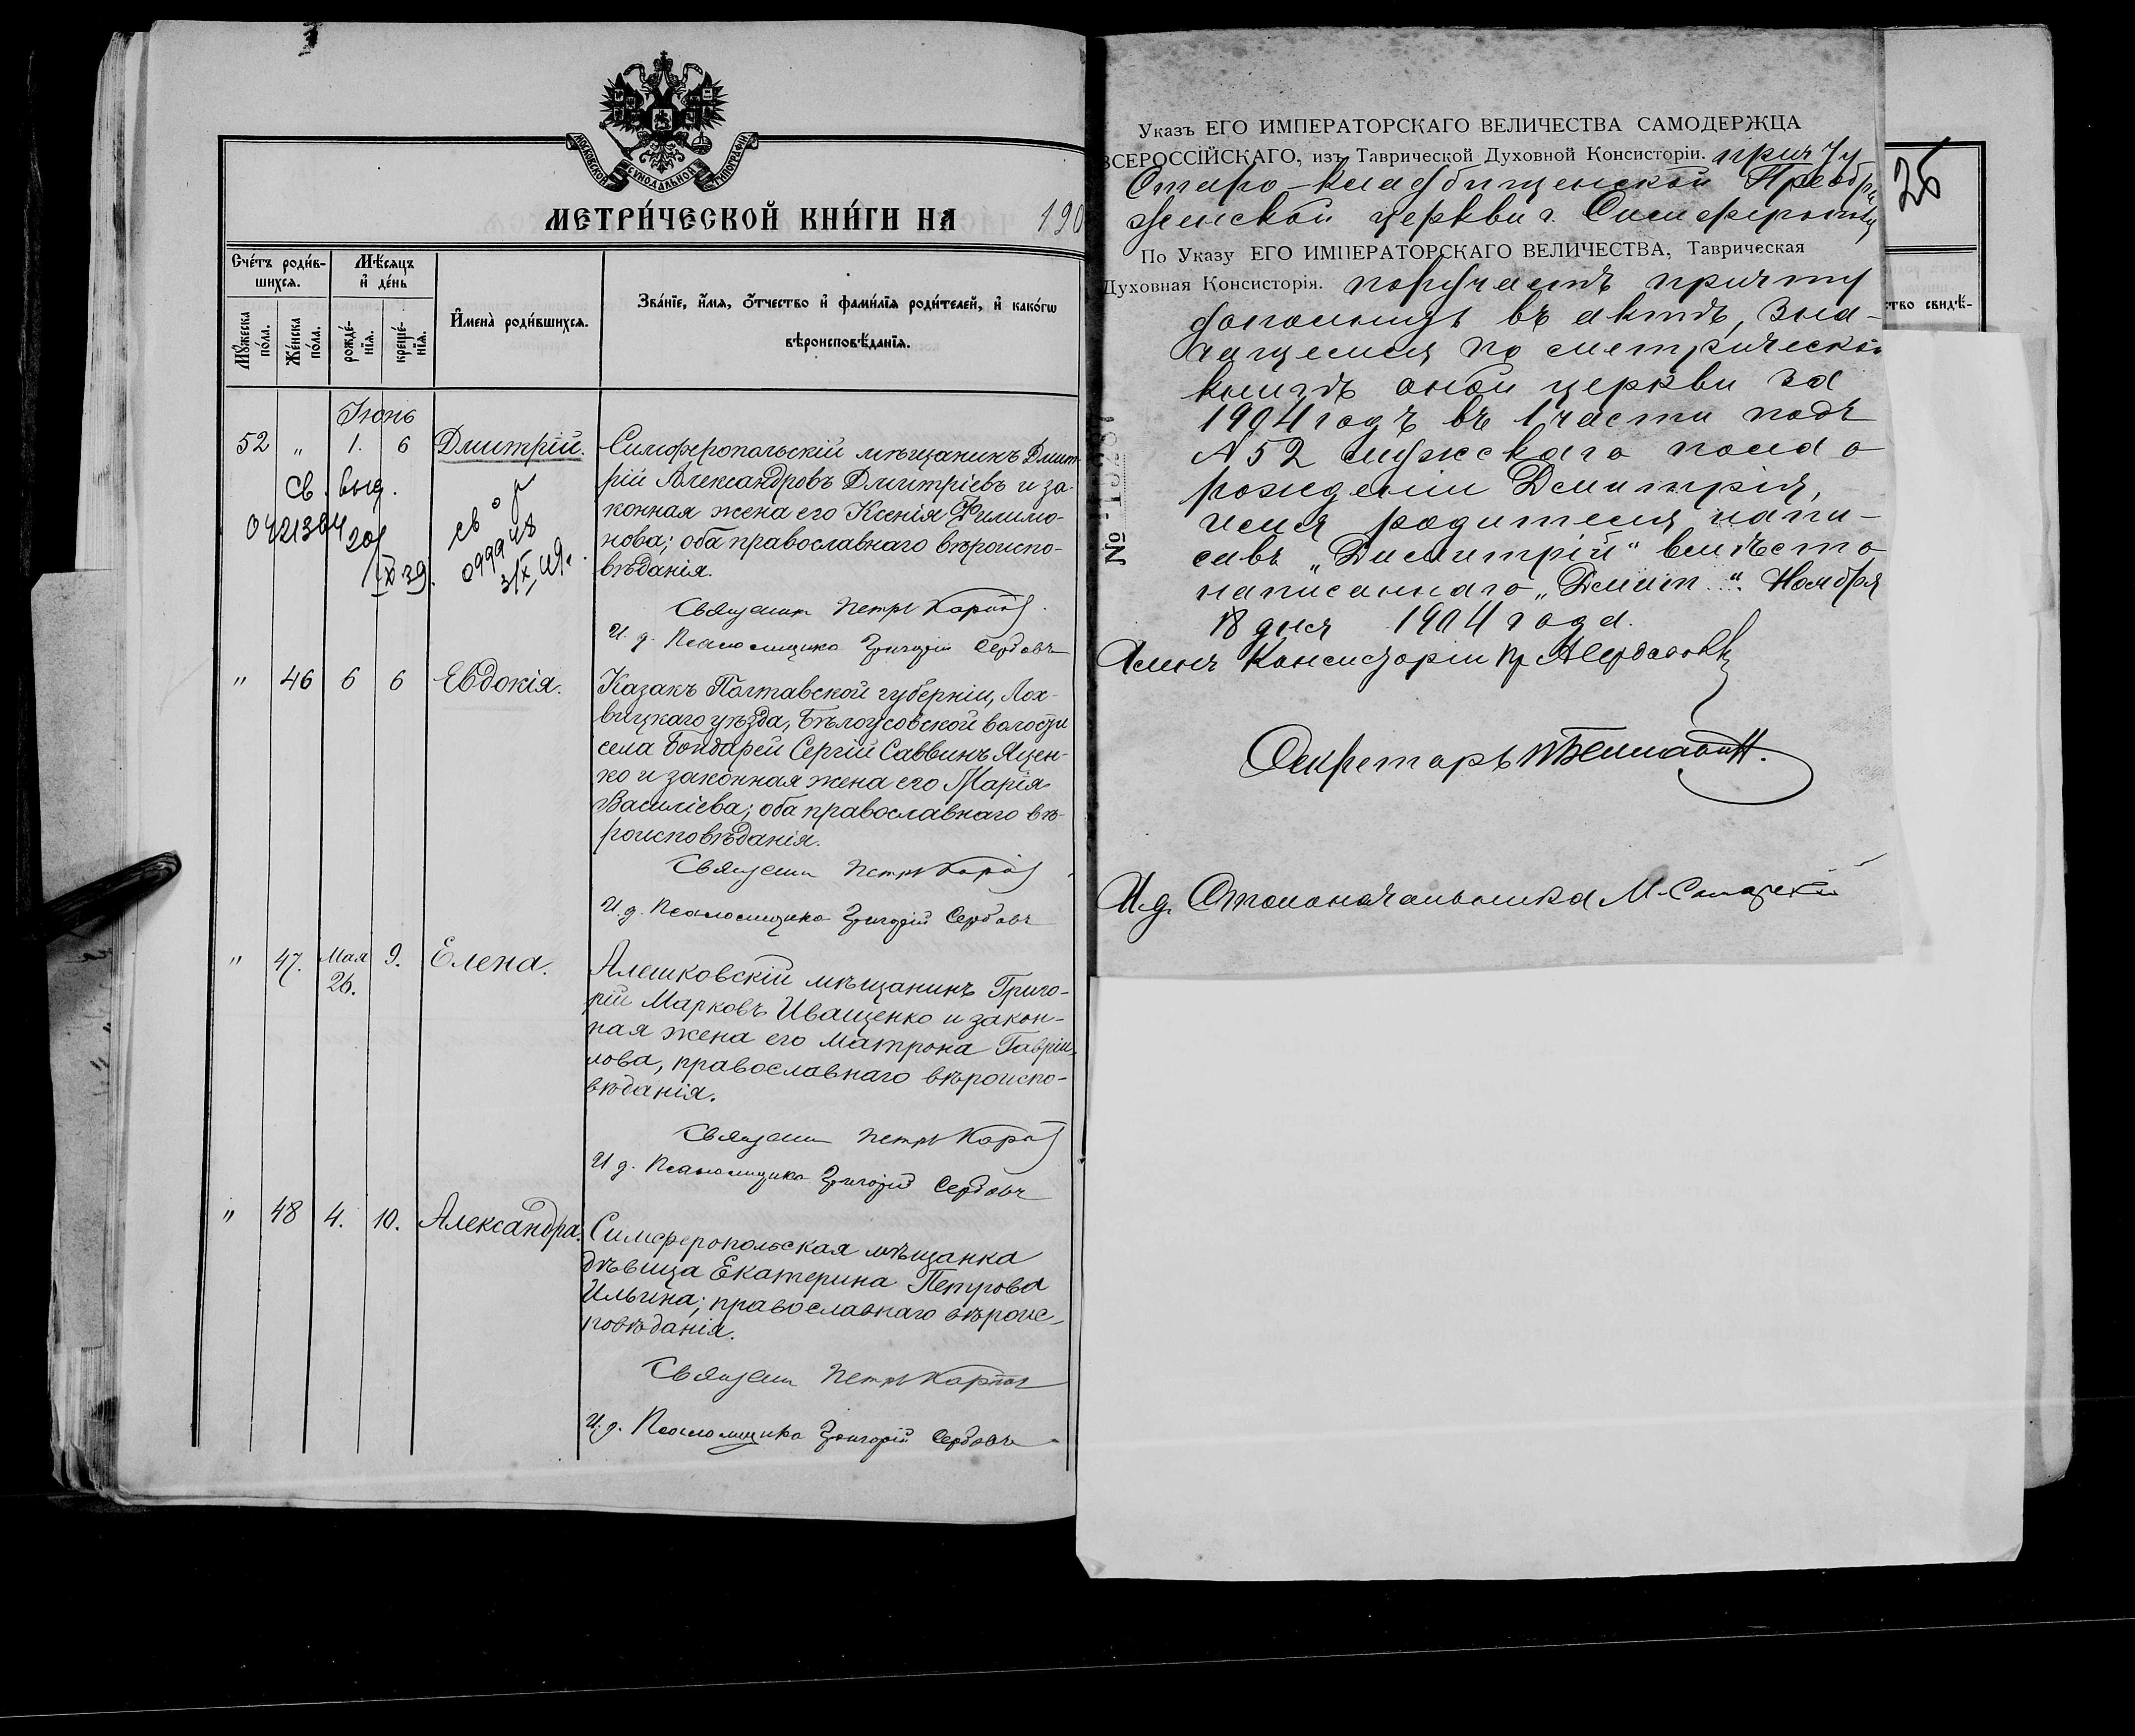 МОСКОВСКОЙ СѴНОДАЛЬНОЙ ТИПОГРАФІИ
МЕТРИ́ЧЕСКОЙ КНИ́ГИ НА 190
Сче́тъ роди́вшихся.
Мѣ́сяцъ и҆ де́нь
Му́жеска по́ла.
Же́нска по́ла.
рожде́нїя.
креще́нїя.
И҆мена̀ роди́вшихся.
Зва́нїе, и҆́мя, ѻ҆́тчество и҆ фами́лїя роди́телей, и҆ како́гѡ
вѣроисповѣ́данїя.
Іюнь
52 " 1. 6 Дмитрій.
Симферопольскій мѣщанинъ Дмит-
рій Александровъ Дмитріевъ и за-
конная жена его Ксенія Филимо-
нова; оба православнаго вѣроиспо-
вѣданія.
Св. выд.
0421394
20/IX 39.
св о р
099948
Священник Петръ Карпов
И. д. Псаломщика Григорій Сербовъ
" 46 6 6 Евдокія.
Казакъ Полтавской губерніи, Лох-
вицкаго уѣзда, Бѣлоусовской волости
села Бондарей Сергій Саввинъ Яцен-
ко и законная жена его Марія
Василіева; оба православнаго вѣ-
роисповѣданія.
Священник Петръ Карпов
И. д. Псаломщика Григорій Сербовъ
" 47. Мая 26. 9. Елена.
Алешковскій мѣщанинъ Григо-
рій Марковъ Иващенко и закон-
ная жена его Матрона Гавріи-
лова, православнаго вѣроиспо-
вѣданія.
Священник Петръ Карпов
И д. Псаломщика Григорій Сербовъ
" 48 4. 10. Александра.
Симферопольская мѣщанка
дѣвица Екатерина Петрова
Ильина; православнаго вѣроис-
повѣданія.
Священник Петръ Карпов
И. д. Псаломщика Григорій Сербовъ
Указъ ЕГО ИМПЕРАТОРСКАГО ВЕЛИЧЕСТВА САМОДЕРЖЦА
ВСЕРОССІЙСКАГО, изъ Таврической Духовной Консисторіи. причту
Старо-кладбищенской Преобра
женской церкви г. Симферополя
По Указу ЕГО ИМПЕРАТОРСКАГО ВЕЛИЧЕСТВА, Таврическая
Духовная Консисторія. поручаетъ причту
дополнить въ актѣ, зна-
чащемся по метрической
книгѣ оной церкви за
1904 годъ въ 1 части подъ
№ 52 мужскаго пола о
рожденіи Димитрія,
имя родителя напи-
савъ „Димитрій" вмѣсто
написаннаго „Дмит.." Ноября
18 дня 1904 года.
Членъ Консисторіи пр. А Сердобольск
Секретарь
И. д. Столоначальника М.
№
26
ство свидѣ-